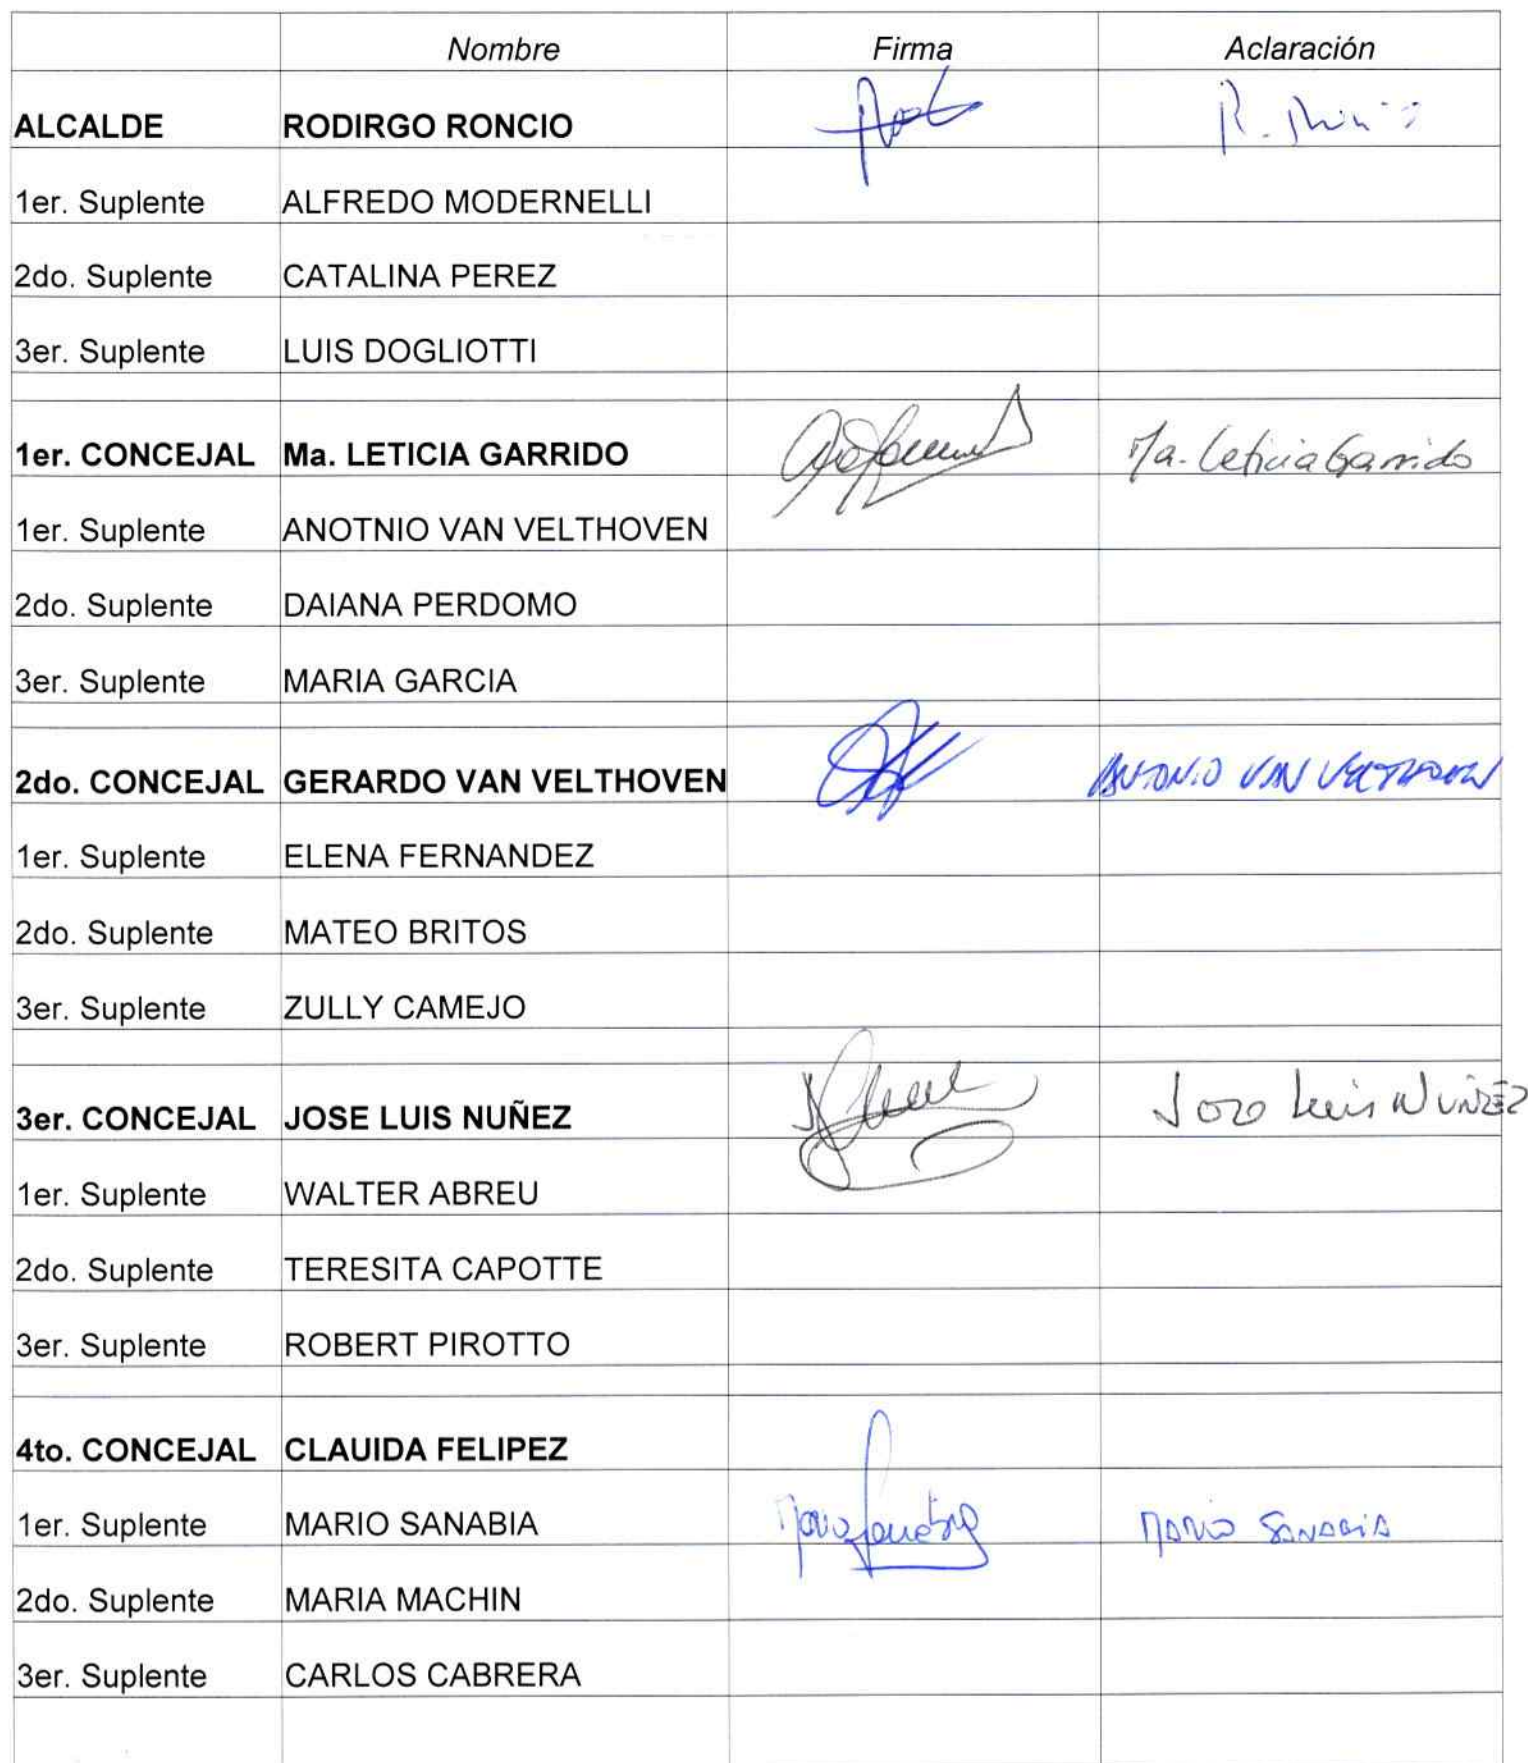 Nombre Firma Aclaración
ALCALDE RODIRGO RONCIO R.
1er. Suplente ALFREDO MODERNELLI
2do. Suplente CATALINA PEREZ
3er. Suplente LUIS DOGLIOTTI
1er. CONCEJAL Ma. LETICIA GARRIDO Ma. Leticia Garrido
1er. Suplente ANOTNIO VAN VELTHOVEN
2do. Suplente DAIANA PERDOMO
3er. Suplente MARIA GARCIA
2do. CONCEJAL GERARDO VAN VELTHOVEN ANTONIO VAN VELTHOVEN
1er. Suplente ELENA FERNANDEZ
2do. Suplente MATEO BRITOS
3er. Suplente ZULLY CAMEJO
3er. CONCEJAL JOSE LUIS NUÑEZ Jose Luis NUÑEZ
1er. Suplente WALTER ABREU
2do. Suplente TERESITA CAPOTTE
3er. Suplente ROBERT PIROTTO
4to. CONCEJAL CLAUIDA FELIPEZ
1er. Suplente MARIO SANABIA MARIO SANABIA
2do. Suplente MARIA MACHIN
3er. Suplente CARLOS CABRERA